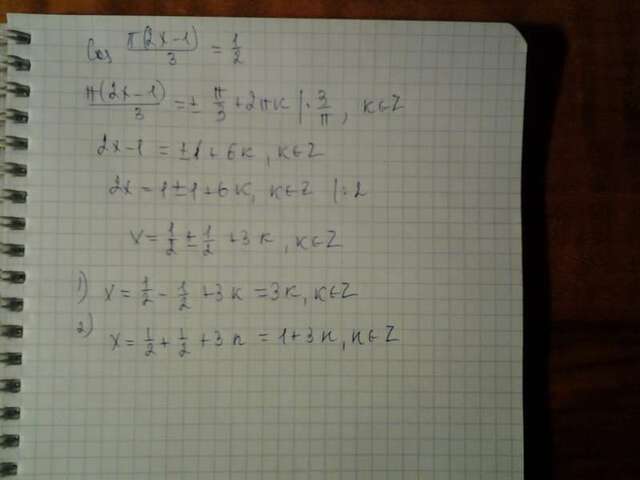 cos π(2x-1)/3 = 1/2
π(2x-1)/3 = ± π/3 + 2πk | · 3/π, k∈Z
2x-1 = ±1 + 6k, k∈Z
2x = 1 ± 1 + 6k, k∈Z | : 2
x = 1/2 ± 1/2 + 3k, k∈Z
1) x = 1/2 - 1/2 + 3k = 3k, k∈Z
2) x = 1/2 + 1/2 + 3n = 1 + 3n, n∈Z